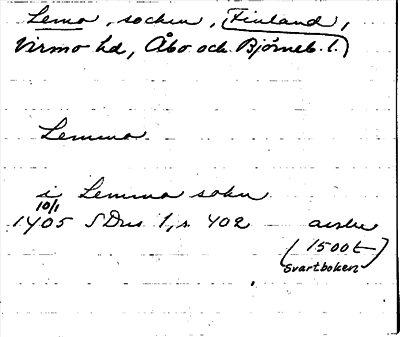 Lemo, socken, Finland,
Virmo hd, Åbo och Björneb. l.)
Lemma
i Lemma sokn
10/1
1405 SDns 1, s. 402 avskr
(1500t)
Svartboken